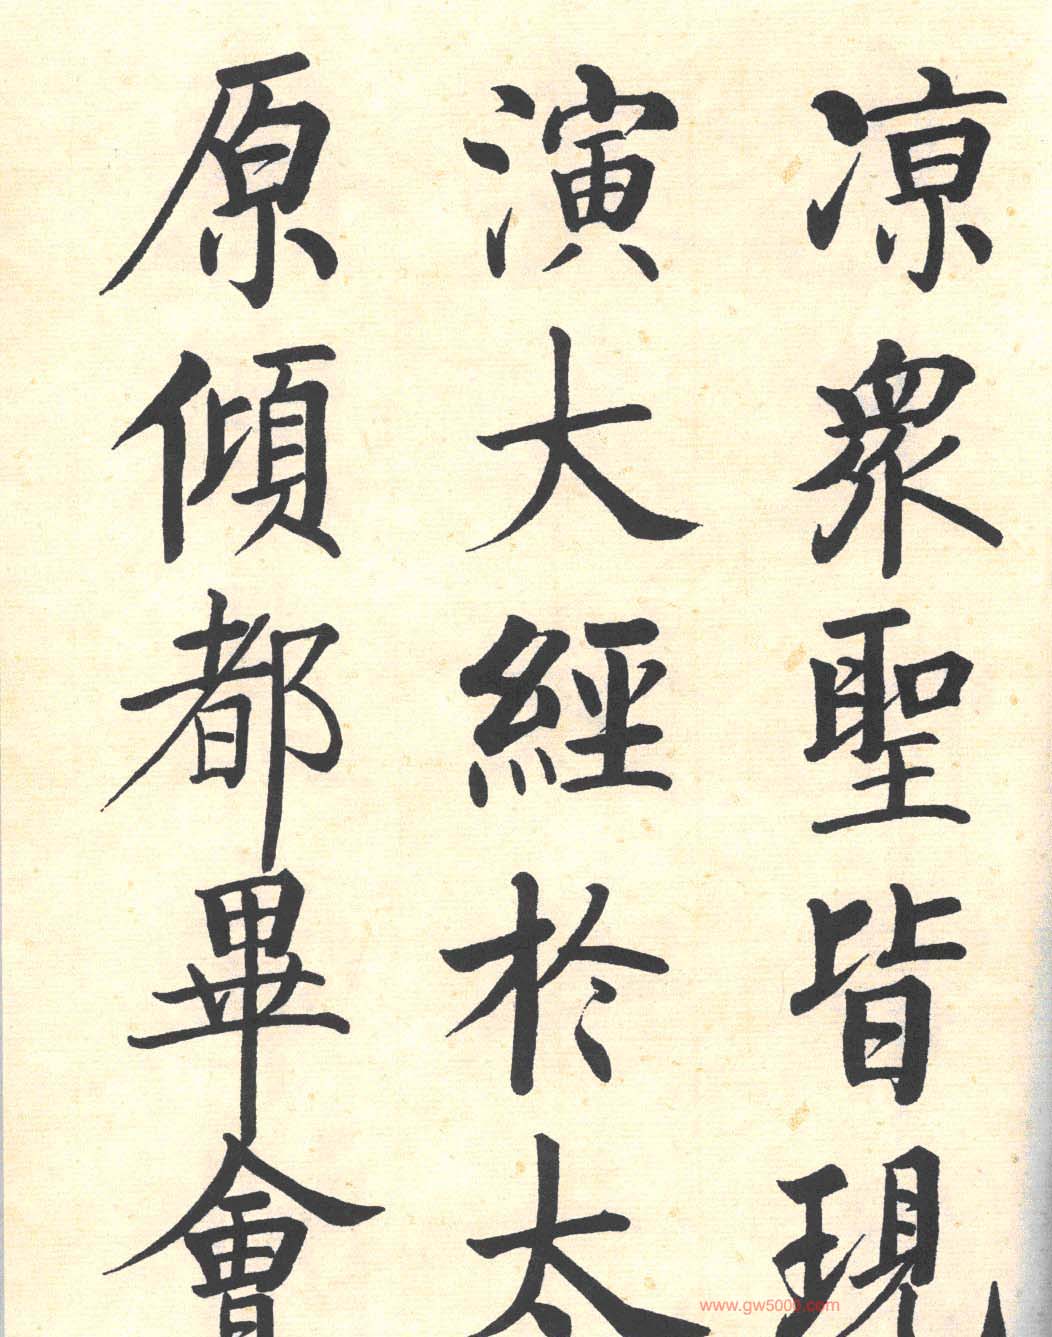 凉眾聖皆現
演大經於太
原傾都畢會
www.gw500.com